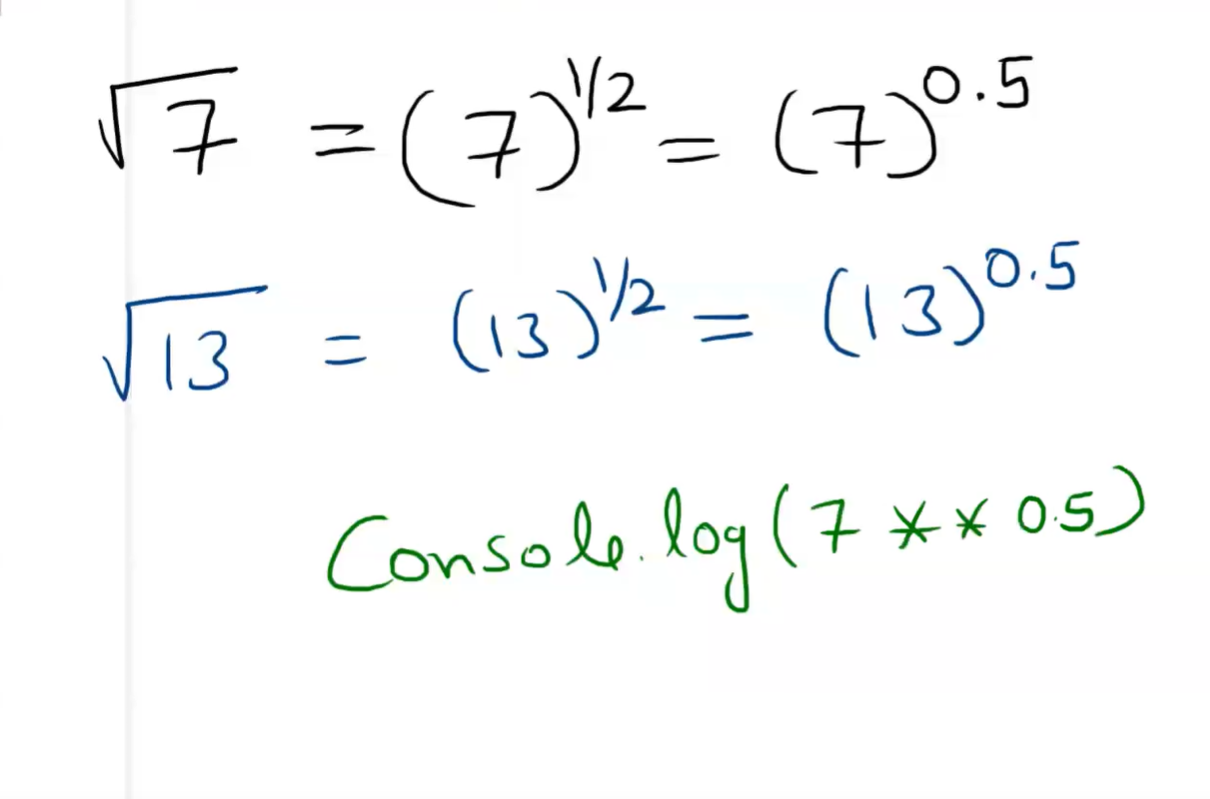 √7 = (7)^1/2 = (7)^0.5
√13 = (13)^1/2 = (13)^0.5
Console.log(7 ** 0.5)